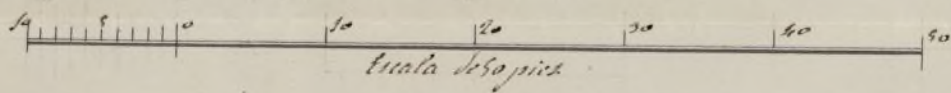 10 5 0 10 20 30 40 50
Escala de 50 pies